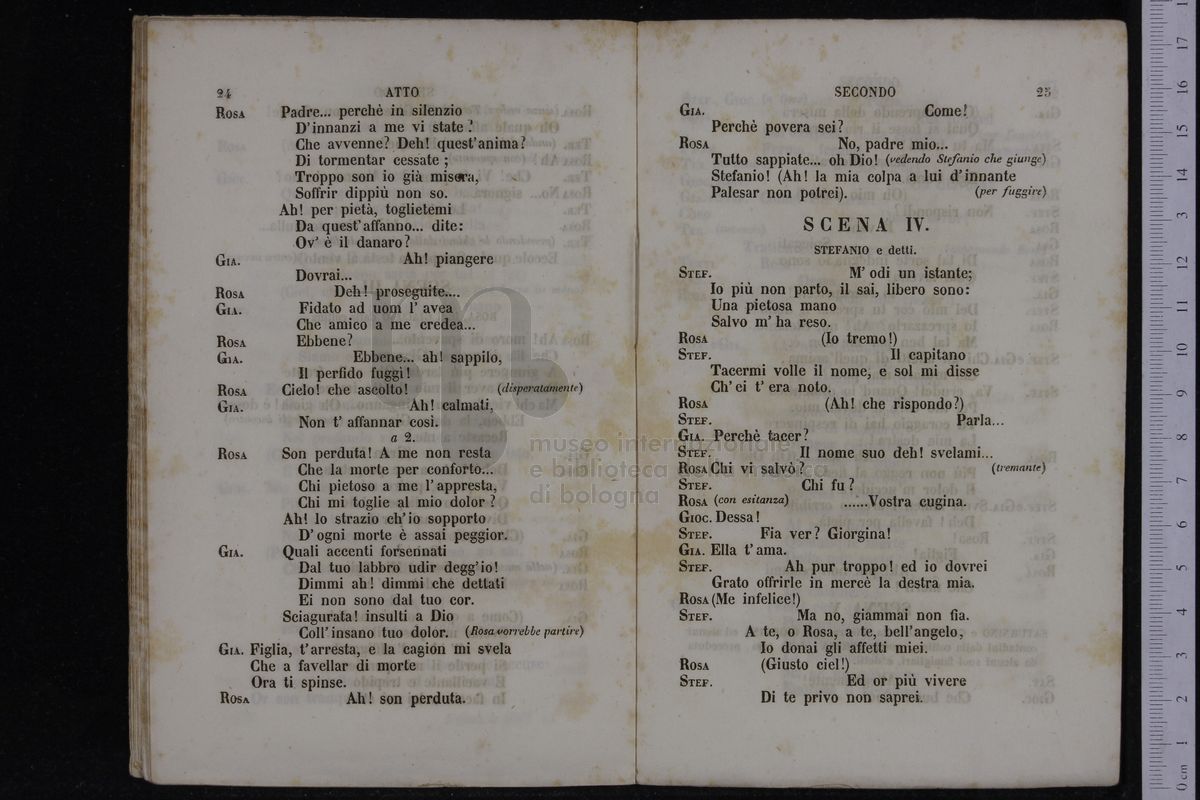 24 ATTO
ROSA Padre... perchè in silenzio
D'innanzi a me vi state?
Che avvenne? Deh! quest'anima?
Di tormentar cessate;
Troppo son io già misera,
Soffrir dippiù non so.
Ah! per pietà, toglietemi
Da quest'affanno... dite:
Ov' è il danaro?
GIA. Ah! piangere
Dovrai...
ROSA Deh! proseguite....
GIA. Fidato ad uom l' avea
Che amico a me credea...
ROSA Ebbene?
GIA. Ebbene... ah! sappilo,
Il perfido fuggì!
ROSA Cielo! che ascolto! (disperatamente)
GIA. Ah! calmati,
Non t' affannar così.
a 2.
ROSA Son perduta! A me non resta
Che la morte per conforto...
Chi pietoso a me l'appresta,
Chi mi toglie al mio dolor?
Ah! lo strazio ch'io sopporto
D'ogni morte è assai peggior.
GIA. Quali accenti forsennati
Dal tuo labbro udir degg'io!
Dimmi ah! dimmi che dettati
Ei non sono dal tuo cor.
Sciagurata! insulti a Dio
Coll'insano tuo dolor. (Rosa vorrebbe partire)
GIA. Figlia, t'arresta, e la cagion mi svela
Che a favellar di morte
Ora ti spinse.
ROSA Ah! son perduta.
SECONDO 25
GIA. Come!
Perchè povera sei?
ROSA No, padre mio...
Tutto sappiate... oh Dio! (vedendo Stefanio che giunge)
Stefanio! (Ah! la mia colpa a lui d'innante
Palesar non potrei). (per fuggire)
SCENA IV.
STEFANIO e detti.
STEF. M' odi un istante;
Io più non parto, il sai, libero sono:
Una pietosa mano
Salvo m'ha reso.
ROSA (Io tremo!)
STEF. Il capitano
Tacermi volle il nome, e sol mi disse
Ch'ei t'era noto.
ROSA (Ah! che rispondo?)
STEF. Parla...
GIA. Perchè tacer?
STEF. Il nome suo deh! svelami...
ROSA Chi vi salvò? (tremante)
STEF. Chi fu?
ROSA (con esitanza) ......Vostra cugina.
GIOC. Dessa!
STEF. Fia ver? Giorgina!
GIA. Ella t'ama.
STEF. Ah pur troppo! ed io dovrei
Grato offrirle in mercè la destra mia.
ROSA (Me infelice!)
STEF. Ma no, giammai non fia.
A te, o Rosa, a te, bell'angelo,
Io donai gli affetti miei.
ROSA (Giusto ciel!)
STEF. Ed or più vivere
Di te privo non saprei.
museo internazionale
e biblioteca della musica
di bologna